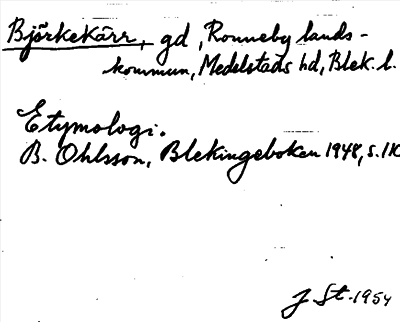 Björkekärr, gd, Ronneby lands-
kommun, Medelstads hd, Blek. l.
Etymologi.
B. Ohlsson, Blekingeboken 1948, s. 110
J. St. 1954